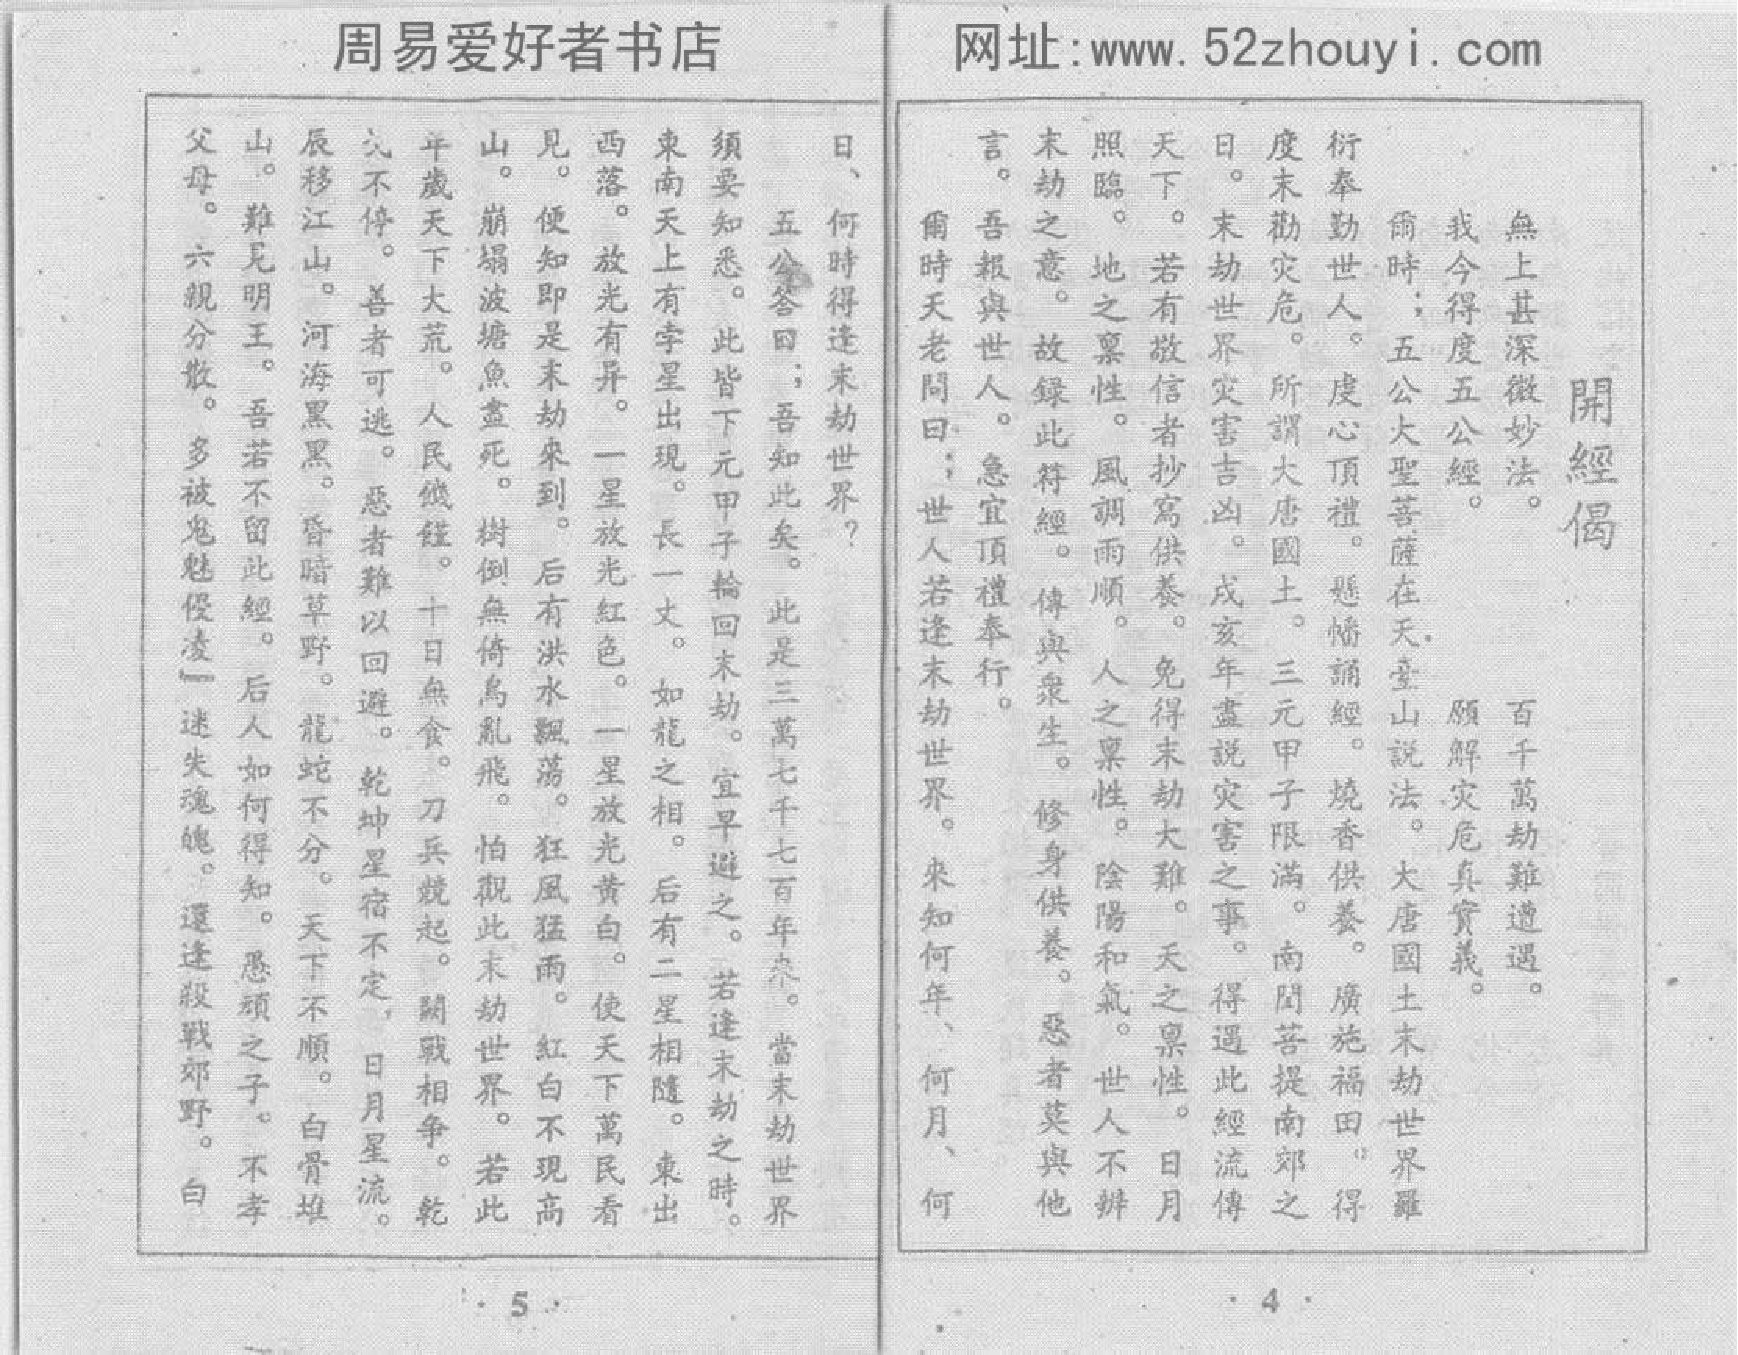 周易爱好者书店
网址:www.52zhouyi.com
開經偈
無上甚深微妙法。 百千萬劫難遭遇。
我今得度五公經。 願解灾危真實義。
爾時；五公大聖菩薩在天臺山説法。大唐國土末劫世界羅
衍奉勤世人。虔心頂禮。懸幡誦經。燒香供養。廣施福田。得
度末勸灾危。所謂大唐國土。三元甲子限滿。南閻菩提南郊之
日。末劫世界灾害吉凶。戌亥年盡説灾害之事。得遇此經流傳
天下。若有敬信者抄寫供養。免得末劫大難。天之禀性。日月
照臨。地之禀性。風調雨順。人之禀性。陰陽和氣。世人不辨
末劫之意。故録此符經。傳與衆生。修身供養。惡者莫與他
言。吾報與世人。急宜頂禮奉行。
爾時天老問曰；世人若逢末劫世界。來知何年、何月、何
日、何時得逢末劫世界?
五公答曰；吾知此矣。此是三萬七千七百年來。當末劫世界
須要知悉。此皆下元甲子輪回末劫。宜早避之。若逢末劫之時。
東南天上有孛星出現。長一丈。如龍之相。后有二星相隨。東出
西落。放光有异。一星放光紅色。一星放光黄白。使天下萬民看
見。便知即是末劫來到。后有洪水飄蕩。狂風猛雨。紅白不現高
山。崩塌波塘魚盡死。樹倒無倚鳥亂飛。怕觀此末劫世界。若此
年歲天下大荒。人民饑饉。十日無食。刀兵競起。鬭戰相争。乾
不停。善者可逃。惡者難以回避。乾坤星宿不定，日月星流。
辰移江山。河海黑黑。昏暗草野。龍蛇不分。天下不順。白骨堆
山。難見明王。吾若不留此經。后人如何得知。愚頑之子。不孝
父母。六親分散。多被鬼魅侵凌』迷失魂魄。還逢殺戰郊野。白
· 4 ·
· 5 ·